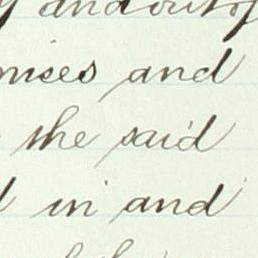 and out of
mises and
the said
in and